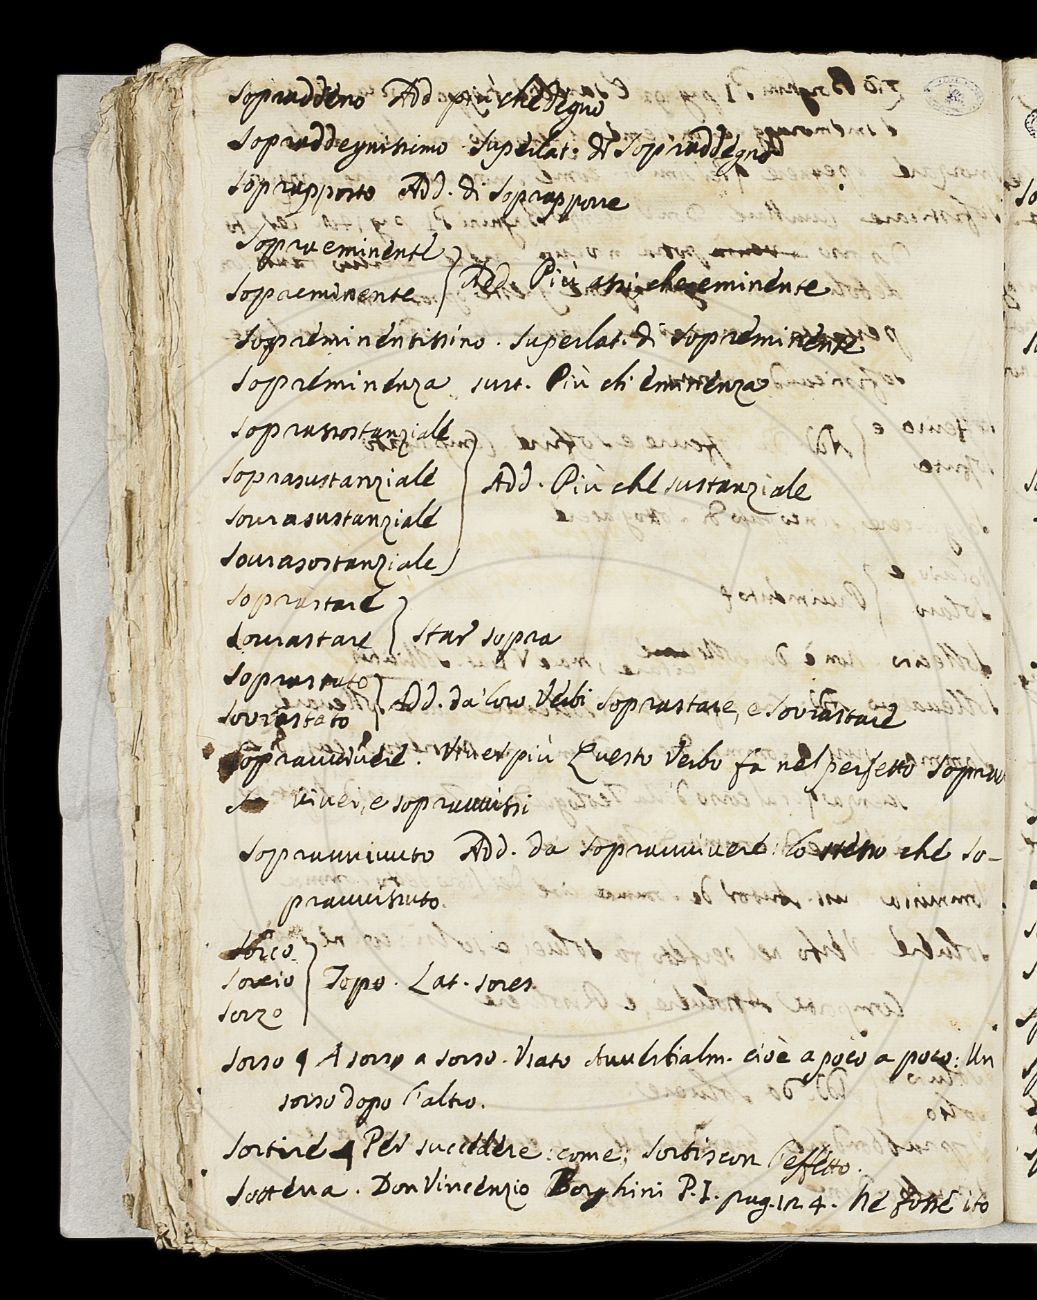 Sopraddeno Add più che degno
Sopraddegnissimo Superlat. di Sopraddegno
Soprapposto Add. di Soprapporre
Sopraeminente
Sopraeminente } Add. Più che eminente
Sopreminentissimo. Superlat. di Sopreminente
Sopreminenza sust. Più ch'eminenza
Soprasostanziale
Soprasustanziale } Add. Più che sustanziale
Sourasustanziale
Sourasostanziale
Soprastare
Sourastare } star sopra
Soprastato
Sovrastato } Add. da' loro Verbi Soprastare, e Sovrastare
Sopravvivere. Viver più Questo Verbo fa nel perfetto Soprav
vivei, e sopravvissi
Sopravvivuto Add. da Sopravvivere: lo stesso che So-
pravvissuto.
Sorco
Sorcio } Topo. Lat. sorex
Sorzo
Sorso ¶ A sorso a sorso. Usato Avverbialm. cioè a poco a poco: Un
sorso dopo l'altro.
Sortire ¶ Per succedere: come; Sortiscon l'effetto.
Sotterra. Don Vincenzio Borghini P. I. pag. 124. Ne fosse ito